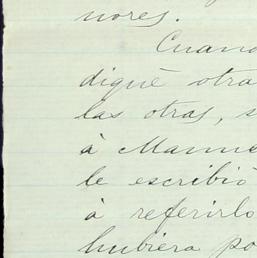 nores.
Cuand
diqué otra
las otras, s
á Manue
le escribió
á referirlo
hubiera po